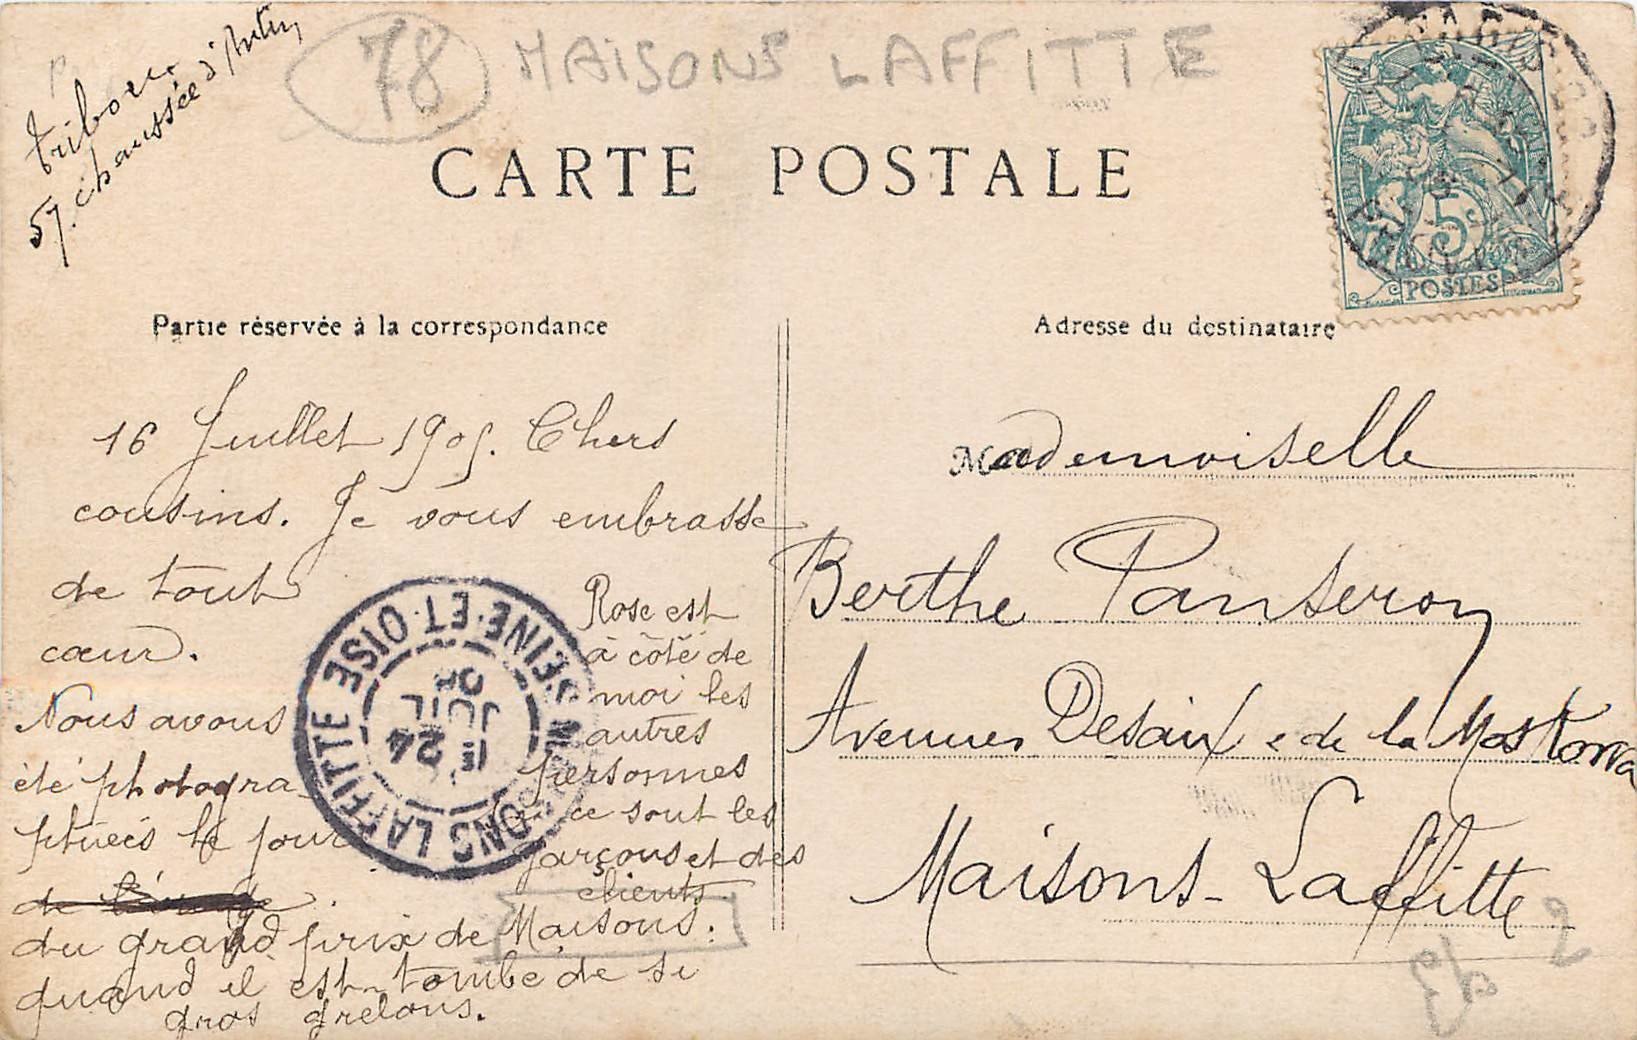 Tribout
57. chaussée d'Antin
78 MAISONS LAFFITTE
CARTE POSTALE
RÉPUBLIQUE FRANÇAISE
5c
POSTES
Partie réservée à la correspondance
16 Juillet 1905. Chers
cousins. Je vous embrasse
de tout
cœur.
Nous avons
été photogra-
phiées le jour
du grand prix de Maisons.
quand il est tombé de si
gros grelons.
Rose est
à côté de
moi les
autres
personnes
ce sont les
garçons et des
clients
MAISONS LAFFITTE SEINE-ET-OISE
24
JUIL
05
Adresse du destinataire
Mademoiselle
Berthe Panseron
Avenues Desaix & de la Moskowa
Maisons-Laffitte
2